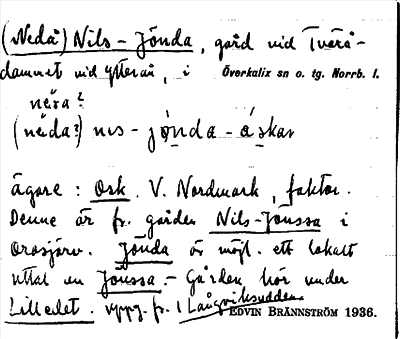 (Nedå) Nils-Jönda, gård vid Tvärå-
dammet vid Ytterån, i Överkalix sn o. tg. Norrb. l.
nęra?
(nęda?) nɪs-jǫ́nda-ą́skar
ägare: Osk. V. Nordmark, faktor.
Denne är fr. gården Nils-Jonssa i
Orrsjärv. Jönda är möjl. ett lokalt
uttal av Jönssa. – Gården hör under
Lilledet. Uppg. fr. 1 Långviksudden
EDVIN BRÄNNSTRÖM 1936.